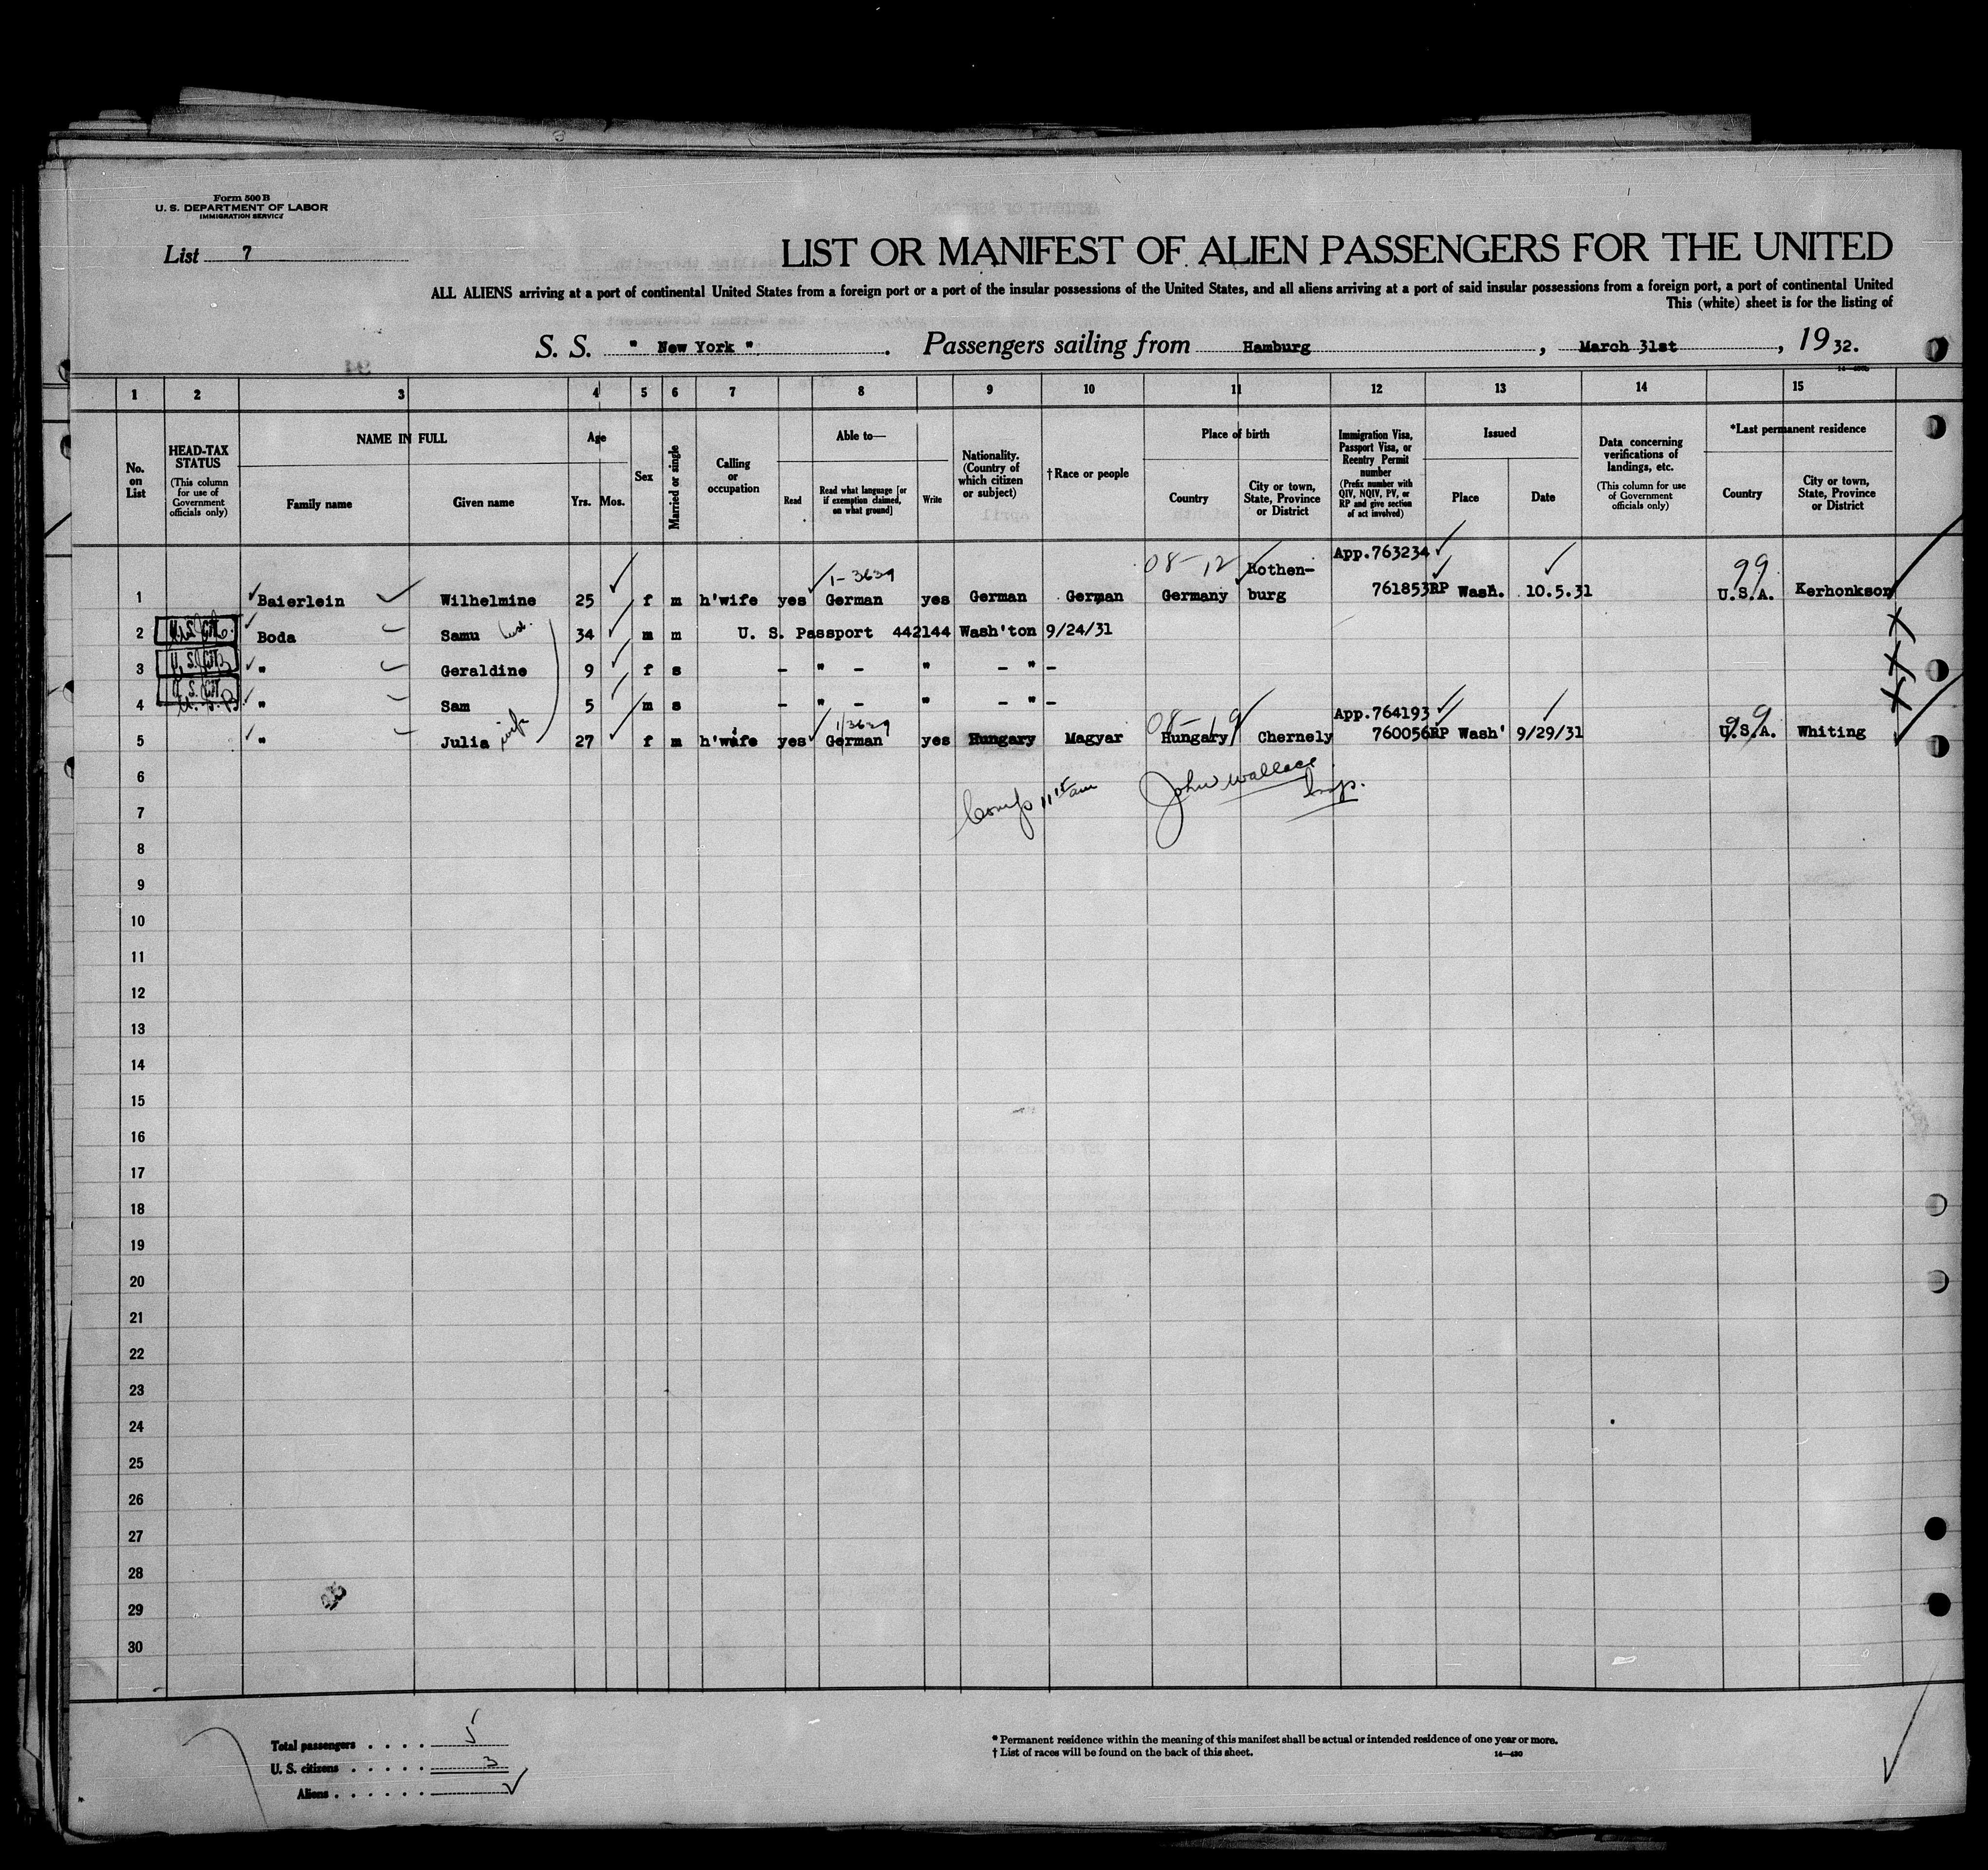 Form 500 B
U. S. DEPARTMENT OF LABOR
IMMIGRATION SERVICE
List 7
LIST OR MANIFEST OF ALIEN PASSENGERS FOR THE UNITED
ALL ALIENS arriving at a port of continental United States from a foreign port or a port of the insular possessions of the United States, and all aliens arriving at a port of said insular possessions from a foreign port, a port of continental United
This (white) sheet is for the listing of
S. S. " New York ". Passengers sailing from Hamburg, March 31st, 1932.
1 2 3 4 5 6 7 8 9 10 11 12 13 14 15
No. on List
HEAD-TAX STATUS (This column for use of Government officials only)
NAME IN FULL
Family name
Given name
Age
Yrs. Mos.
Sex
Married or single
Calling or occupation
Able to—
Read
Read what language [or if exemption claimed, on what ground]
Write
Nationality. (Country of which citizen or subject)
†Race or people
Place of birth
Country
City or town, State, Province or District
Immigration Visa, Passport Visa, or Reentry Permit number (Prefix number with QIV, NQIV, PV, or RP and give section of act involved)
Issued
Place
Date
Data concerning verifications of landings, etc. (This column for use of Government officials only)
*Last permanent residence
Country
City or town, State, Province or District
1-3639 08-12 Rothen- App.763234 99
1 Baierlein Wilhelmine 25 f m h'wife yes German yes German German Germany burg 761853RP Wash. 10.5.31 U.S.A. Kerhonkson
2 U.S. Cit. Boda Samu 34 m m U. S. Passport 442144 Wash'ton 9/24/31
3 U.S. Cit " Geraldine 9 f s - " - " - " -
4 U.S. Cit U.S.B " Sam 5 m s - " - " - " -
1/3639 08-19 App.764193 99
5 " Julia wife 27 f m h'wife yes German yes Hungary Magyar Hungary Chernely 760056RP Wash' 9/29/31 U.S.A. Whiting
6
John Wallace
Insp.
7
8
9
10
11
12
13
14
15
16
17
18
19
20
21
22
23
24
25
26
27
28
29
30
Total passengers . . . . 5
U. S. citizens . . . . . 3
Aliens . . . . . .
* Permanent residence within the meaning of this manifest shall be actual or intended residence of one year or more.
† List of races will be found on the back of this sheet. 14—430